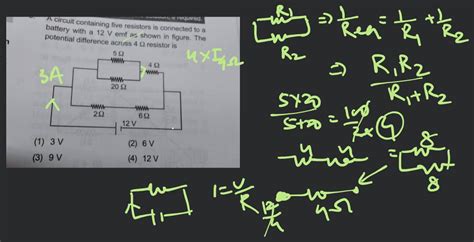 A circuit containing five resistors is connected to a
battery with a 12 V emf as shown in figure. The
potential difference across 4 Ω resistor is
5 Ω
4 Ω
20 Ω
2Ω
6Ω
12 V
(1) 3 V
(2) 6 V
(3) 9 V
(4) 12 V
3A
4 x I4Ω
R1
R2
⇒ 1/Req = 1/R1 + 1/R2
⇒ R1R2/R1+R2
5x20/5+20 = 100/25 4
4 4
= 8
8
I = V/R
12/4
4Ω